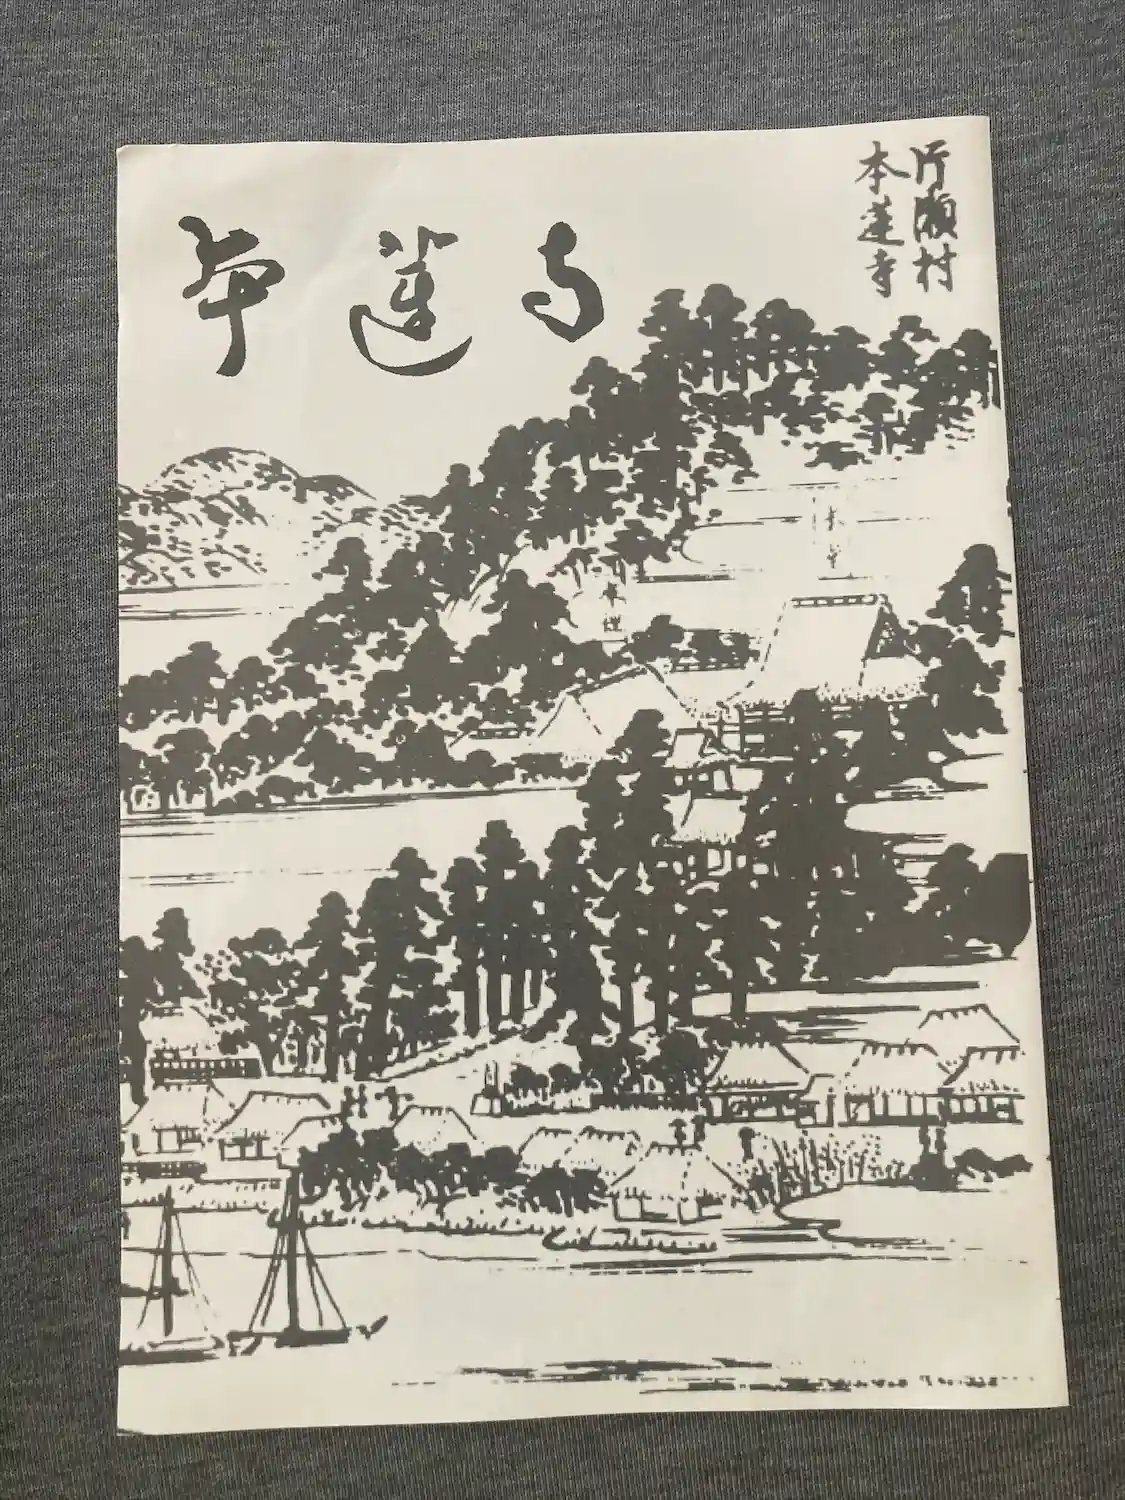 本蓮寺
片瀬村
本蓮寺